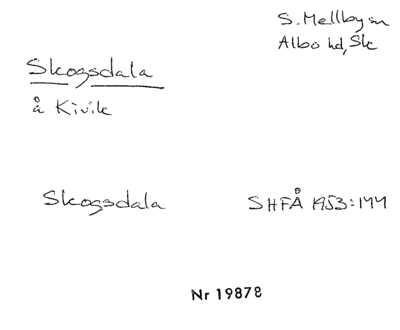 S. Mellby sn
Albo hd, Sk
Skogsdala
å Kivik
Skogsdala
SHFÅ 1953:144
Nr 19878